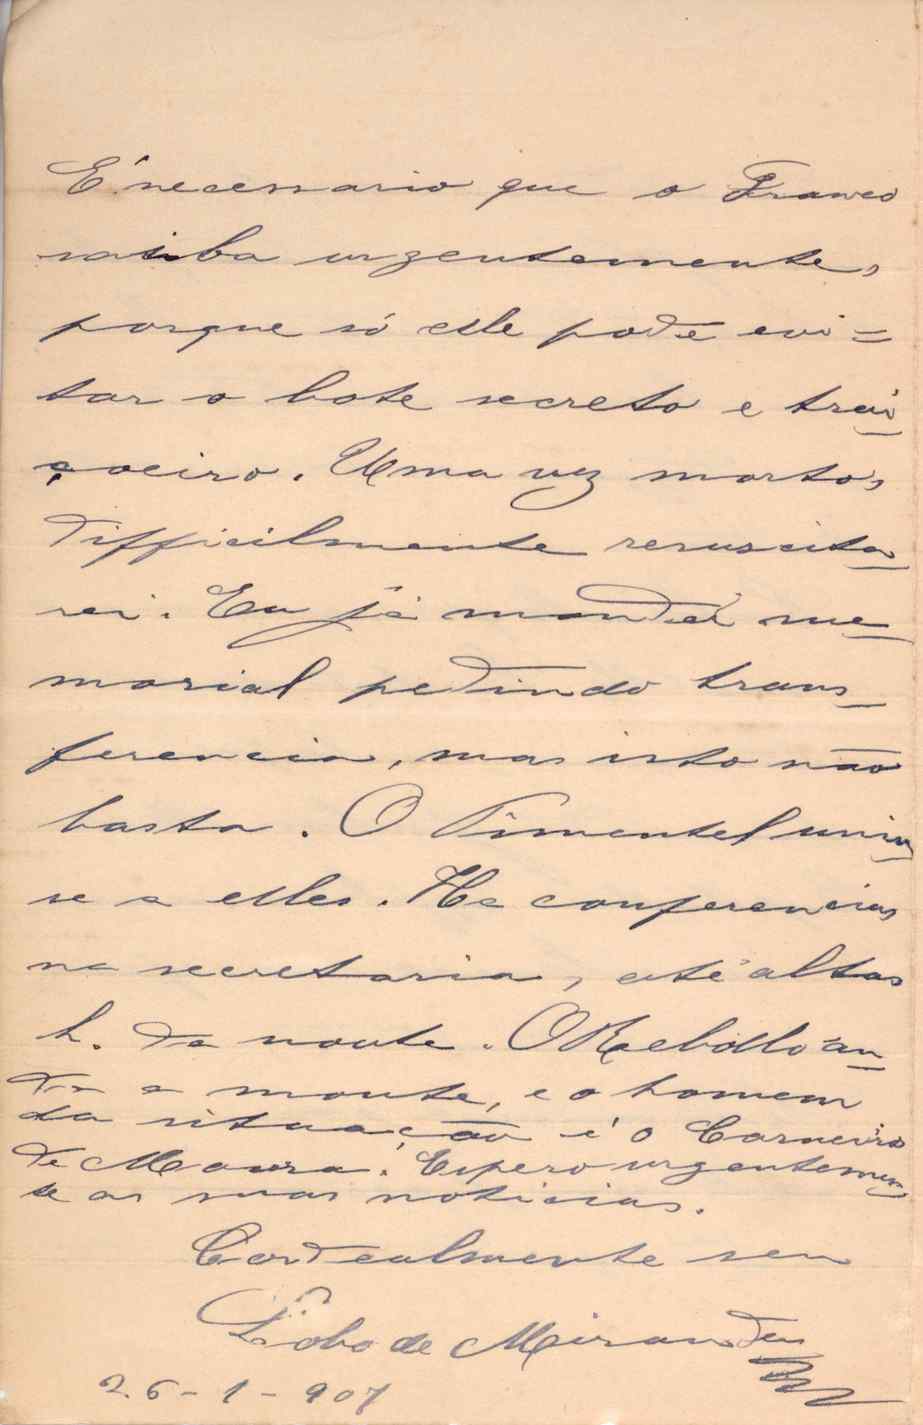 É necessario que o Franco
saiba urgentemente,
porque só elle pode evi=
tar o bote secreto e trai-
çoeiro. Uma vez morto,
difficilmente resuscita-
rei. Eu já mandei me-
morial pedindo trans-
ferencia, mas isto não
basta. O Pimentel uniu-
se a elles. Ha conferencias
na secretaria, até altas
h. da noute. O Rebollo an-
da a monte, e o homem
da situação é o Carneiro
de Moura. Espero urgentemen-
te as suas noticias.
Cordealmente seu
Lobo de Miranda
26-1-907